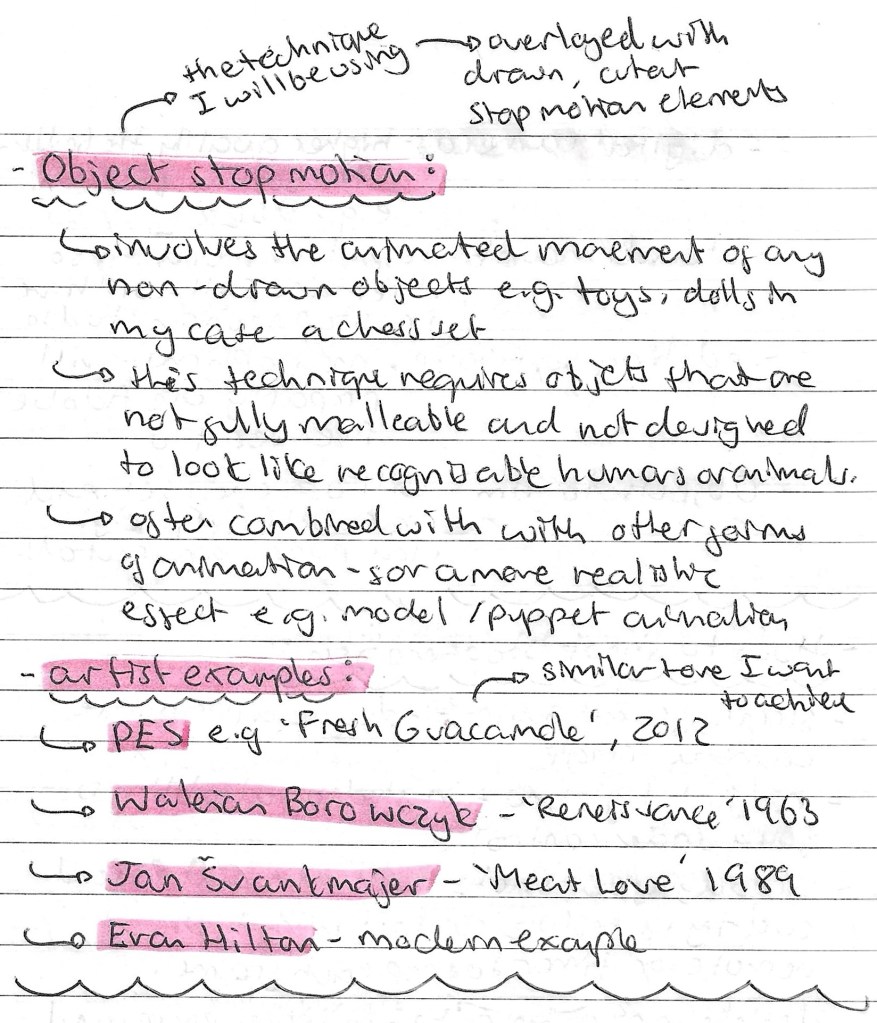 the technique
I will be using
overlayed with
drawn, cutout
stop motion elements
- Object stop motion:
involves the animated movement of any
non-drawn objects e.g. toys, dolls in
my case a chess set
this technique requires objcts that are
not fully malleable and not designed
to look like recognisable humans or animals.
often combined with with other forms
of animation - for a more realistic
effect e.g. model /puppet animation
- artist examples:
similar tone I want
to achieve
PES e.g 'Fresh Guacamole', 2012
Walerian Borowczyk - 'Renaissance' 1963
Jan Švankmajer - 'Meat Love' 1989
Evan Hilton - modern example